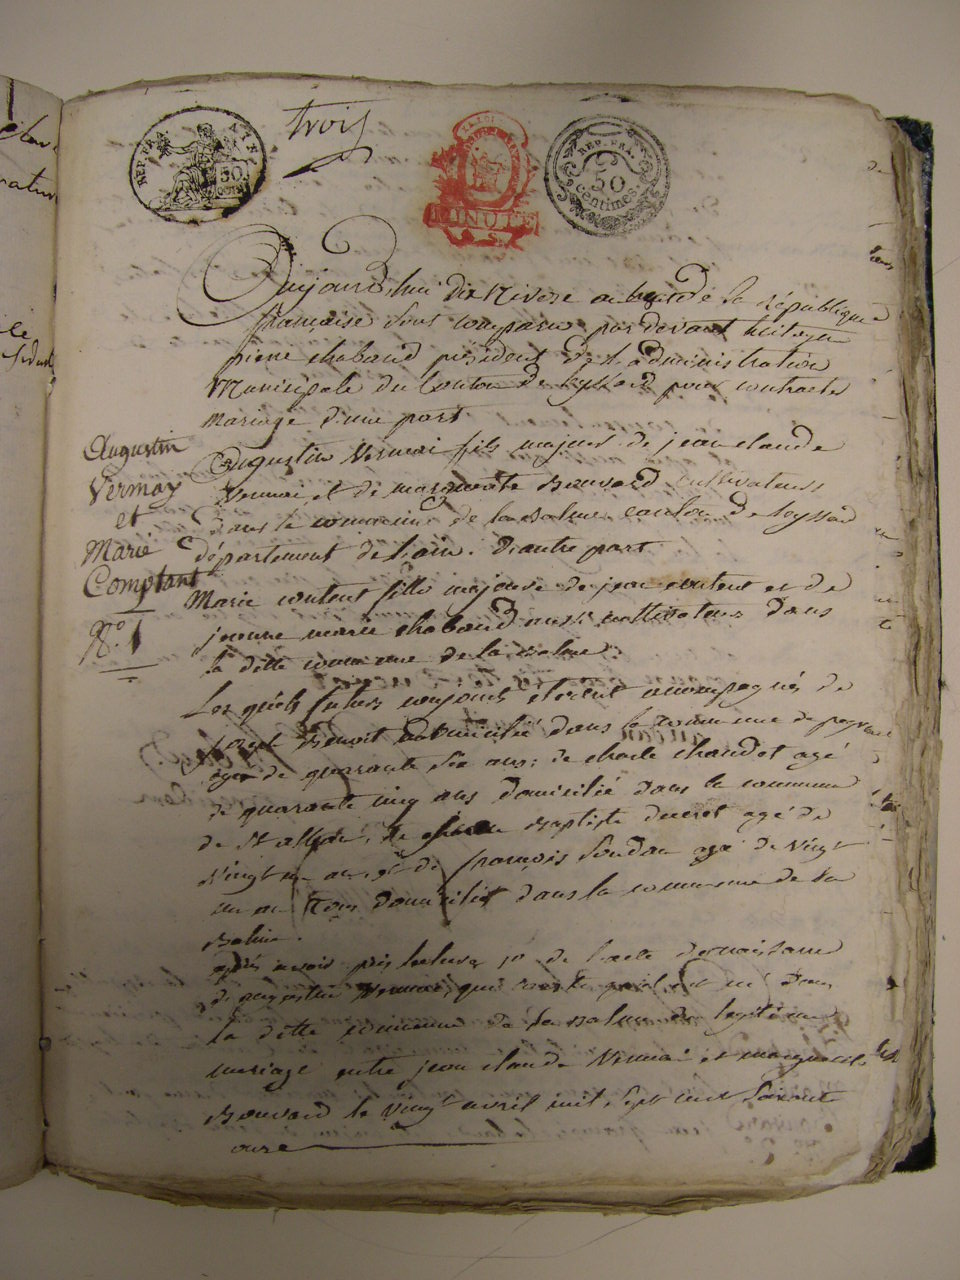 trois
REP. FRA.
AIN
50
MINUTE
REP. FRA.
50
centimes.
Aujourd'hui dix Nivose an de la république
française sont comparu par devant le citoyen
pierre chabaud président de l'administration
Municipale du Canton de leyssard pour contracter
Mariage d'une part
Augustin Vermai fils majeur de jean claude
Vermai et de marguerite Bouvard cultivateurs
dans la commune de la Balme canton de leyssard
département de l'ain. d'autre part
Marie content fille majeure de jean content et de
jeanne marie chabaud aussi cultivateurs dans
la ditte commune de la Balme.
Augustin
Vermay
et
Marie
Comptant
N.º 1
Les quels futurs conjoints étoient accompagnés de
joseph Benoit domicilié dans la commune de
agé de quarante six ans: de charle chaudet agé
de quarante cinq ans domicilié dans la commune
de St alban, de Baptiste ducret agé de
Vingt ans et de françois soudan agé de Vingt
un an tous domiciliés dans la commune de la
Balme.
après avoir pris lecture 1º de l'acte de naissance
de augustin Vermai, qui conste qu'il est né dans
la ditte commune de la Balme du légitime
mariage entre jean claude Vermai et marguerite
Bouvard le Vingt avril mil sept cent soixante
onze